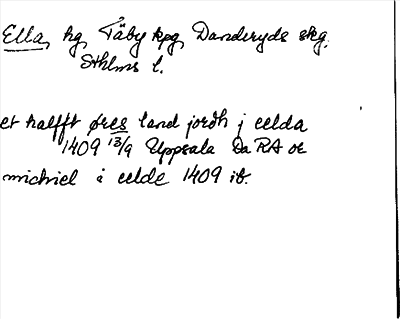 Ella, hg, Täby kpg, Danderyds skg.
Sthlms l.
et halfft øres land jordh j ælda
1409 13/9 Uppsala Da RA oc
michiel i ælde 1409 ib.